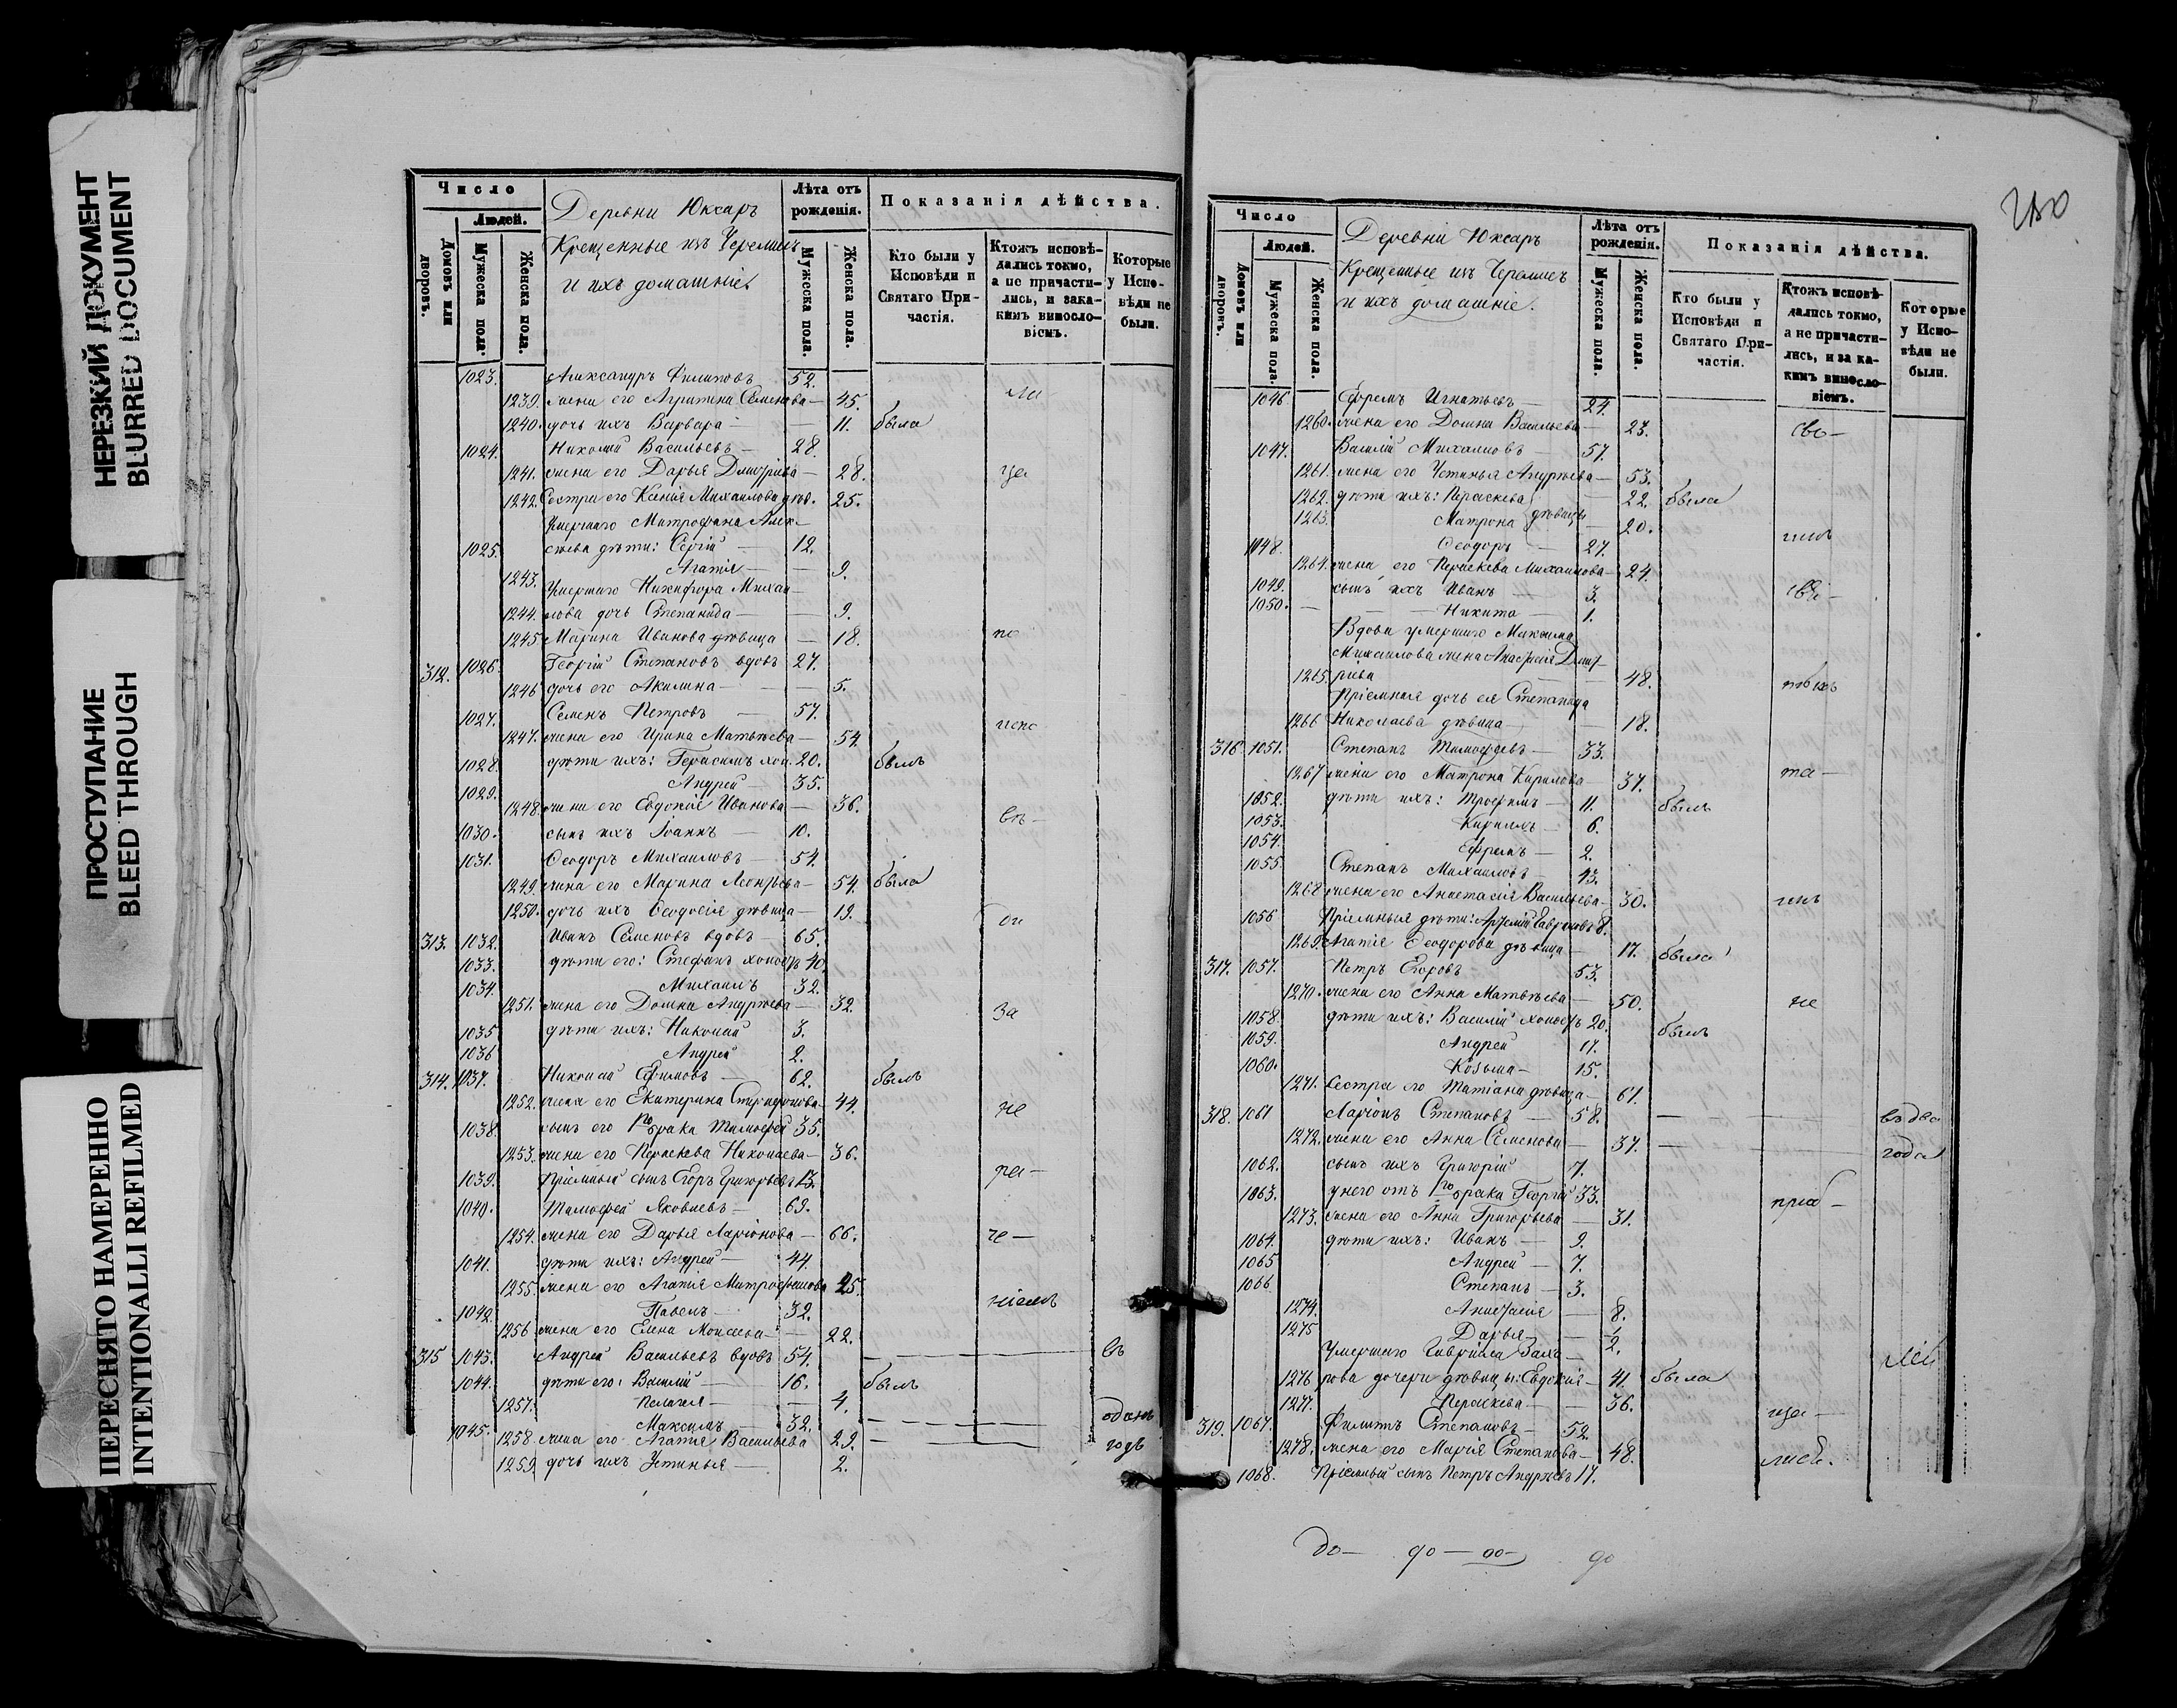 НЕРЕЗКИЙ ДОКУМЕНТ
BLURRED DOCUMENT
ПРОСТУПАНИЕ
BLEED THROUGH
ПЕРЕСНЯТО НАМЕРЕННО
INTENTIONALLI REFILMED
Число
Людей.
Домовъ или дворовъ.
Мужеска пола.
Женска пола.
Деревни Юксаръ
Крещенные изъ Черемисъ
и ихъ домашніе.
Лѣта отъ рожденія.
Мужеска пола.
Женска пола.
Показанія дѣйства.
Кто были у Исповѣди и Святаго Причастія.
Ктожъ исповѣдались токмо, а не причастились, и за какимъ винословіемъ.
Которые у Исповѣди не были.
1023. Александръ Филиповъ 52.
1239. жена его Агрипина Семенова — 45. ли
1240. дочь ихъ Варвара — — 11. была
1024. Николай Васильевъ — 28.
1241. жена его Дарья Дмитріева — 28. ща
1242. Сестра его Ксенія Михаилова дѣв. 25.
Умершаго Митрофана Алек-
1025. сѣева дѣти: Сергій — 12.
1243. Агапія — — 9.
Умершаго Никифора Михаи-
1244. лова дочь Степанида — — 9.
1245 Марина Иванова дѣвица — 18. по
312. 1026. Георгій Степановъ вдовъ 27.
1246 дочь его Акилина — — 5.
1027. Семенъ Петровъ — 57. испо
1247. жена его Ирина Матвѣева — 54.
1028. дѣти ихъ: Герасимъ хол. 20. былъ
1029. Андрей — 35.
1248. жена его Евдокія Иванова — 36. вѣ —
1030. сынъ ихъ Іоаннъ — 10.
1031. Ѳеодоръ Михаиловъ — 54.
1249. жена его Марина Леонтьева — 54. была
1250. дочь ихъ Ѳеодосія дѣвица — 19.
313. 1032. Иванъ Семеновъ вдовъ — 65.
1033. дѣти его: Стефанъ холостъ 40.
1034. Михаилъ 32.
1251. жена его Домна Андреева — 32. за
1035 дѣти ихъ: Николай 3.
1036 Андрей 2.
314. 1037. Николай Ефимовъ — 62. былъ
1252. жена его Екатерина Спиридонова — 44. не
1038. сынъ его 1го брака Тимоѳей 35.
1253. жена его Параскева Николаева — 36.
1039. Пріемный сынъ Егоръ Григорьевъ 13. ра —
1040. Тимоѳей Яковлевъ — 69.
1254. жена его Дарья Ларіонова — 66. че —
1041. дѣти ихъ: Андрей — 44.
1255. жена его Агапія Митрофанова 45.
1042. Павелъ — 32. ніемъ
1256 жена его Елена Моисеева — — 22.
315 1043. Андрей Васильевъ вдовъ 54. въ
1044. дѣти его: Василій — 16. былъ
1257. Пелагея — — 4.
1045. Максимъ — 32. одинъ
1258. жена его Агапія Васильева 29. годъ
1259. дочь ихъ Устинья — 2.
Число
Людей.
Домовъ или дворовъ.
Мужеска пола.
Женска пола.
Деревни Юксаръ
Крещенные изъ Черемисъ
и ихъ домашніе.
Лѣта отъ рожденія.
Мужеска пола.
Женска пола.
Показанія дѣйства.
Кто были у Исповѣди и Святаго Причастія.
Ктожъ исповѣдались токмо, а не причастились, и за какимъ винословіемъ.
Которые у Исповѣди не были.
1046 Ефремъ Игнатьевъ — 24.
1260. жена его Домна Васильева — 23.
1047. Василій Михаиловъ — 57.
1261. жена его Устинья Андреева — 53.
1262. дѣти ихъ: Параскева — 22. была
1263. Матрона дѣвицы — 20.
1048. Ѳеодоръ — 27.
1264. жена его Параскева Михаилова — 24.
1049. сынъ ихъ Иванъ — 3.
1050. — Никита — 1.
Вдова умершаго Максима
Михаилова жена Анастасія Дмит-
1265. ріева — 48.
Пріемная дочь ея Степанида
1266 Николаева дѣвица — 18.
316 1051. Степанъ Тимоѳеевъ — 33.
1267 жена его Матрона Кирилова 37. та —
1052. дѣти ихъ: Трофимъ — 11. былъ
1053. Кирилъ — 6.
1054. Ефремъ — 2.
1055 Степанъ Михаиловъ — 43.
1268 жена его Анастасія Васильева — 30.
1056 Пріемныя дѣти: Артемій Гавриловъ 8.
1269. Агапія Ѳеодорова дѣвица — 17. была
317. 1057. Петръ Егоровъ 53.
1270. жена его Анна Матвѣева — 50. не
1058. дѣти ихъ: Василій холостъ 20. былъ
1059. Андрей 17.
1060. Козьма — 15.
1271. Сестра его Татіана дѣвица — 61.
318. 1061 Ларіонъ Степановъ — 58. — въ два
1272. жена его Анна Семенова — 37. — года
1062. сынъ ихъ Григорій 7.
1063. у него отъ 1го брака Георгій 33.
1273. жена его Анна Григорьева — 31.
1064. дѣти ихъ: Иванъ — 9.
1065 Андрей — 7.
1066 Степанъ — 3.
1274. Анастасія — 8.
1275 Дарья — — 1/2.
Умершаго Гавріила Заха-
1276 рова дочери дѣвицы: Евдокія — 41 была
1277. Параскева — — 36.
319. 1067. Филипъ Степановъ — 52
1278. жена его Марія Степанова — 48.
1068. Пріемный сынъ Петръ Андреевъ 17.